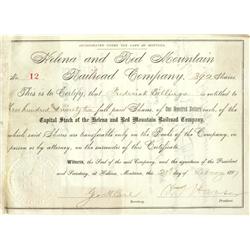 INCORPORATED UNDER THE LAWS OF MONTANA
Helena and Red Mountain
No. 12 Railroad Company. 392 Shares
This is to Certify, that Frederick Billings is entitled to
Three hundred & ninety two full paid Shares of One Hundred Dollars each, of the
Capital Stock of the Helena and Red Mountain Railroad Company,
which said Shares are transferable only on the Books of the Company, in
person or by attorney, on the surrender of this Certificate.
Witness, the Seal of the said Company, and the signatures of the President
and Secretary, at Helena, Montana, the day of 188
Secretary. President.